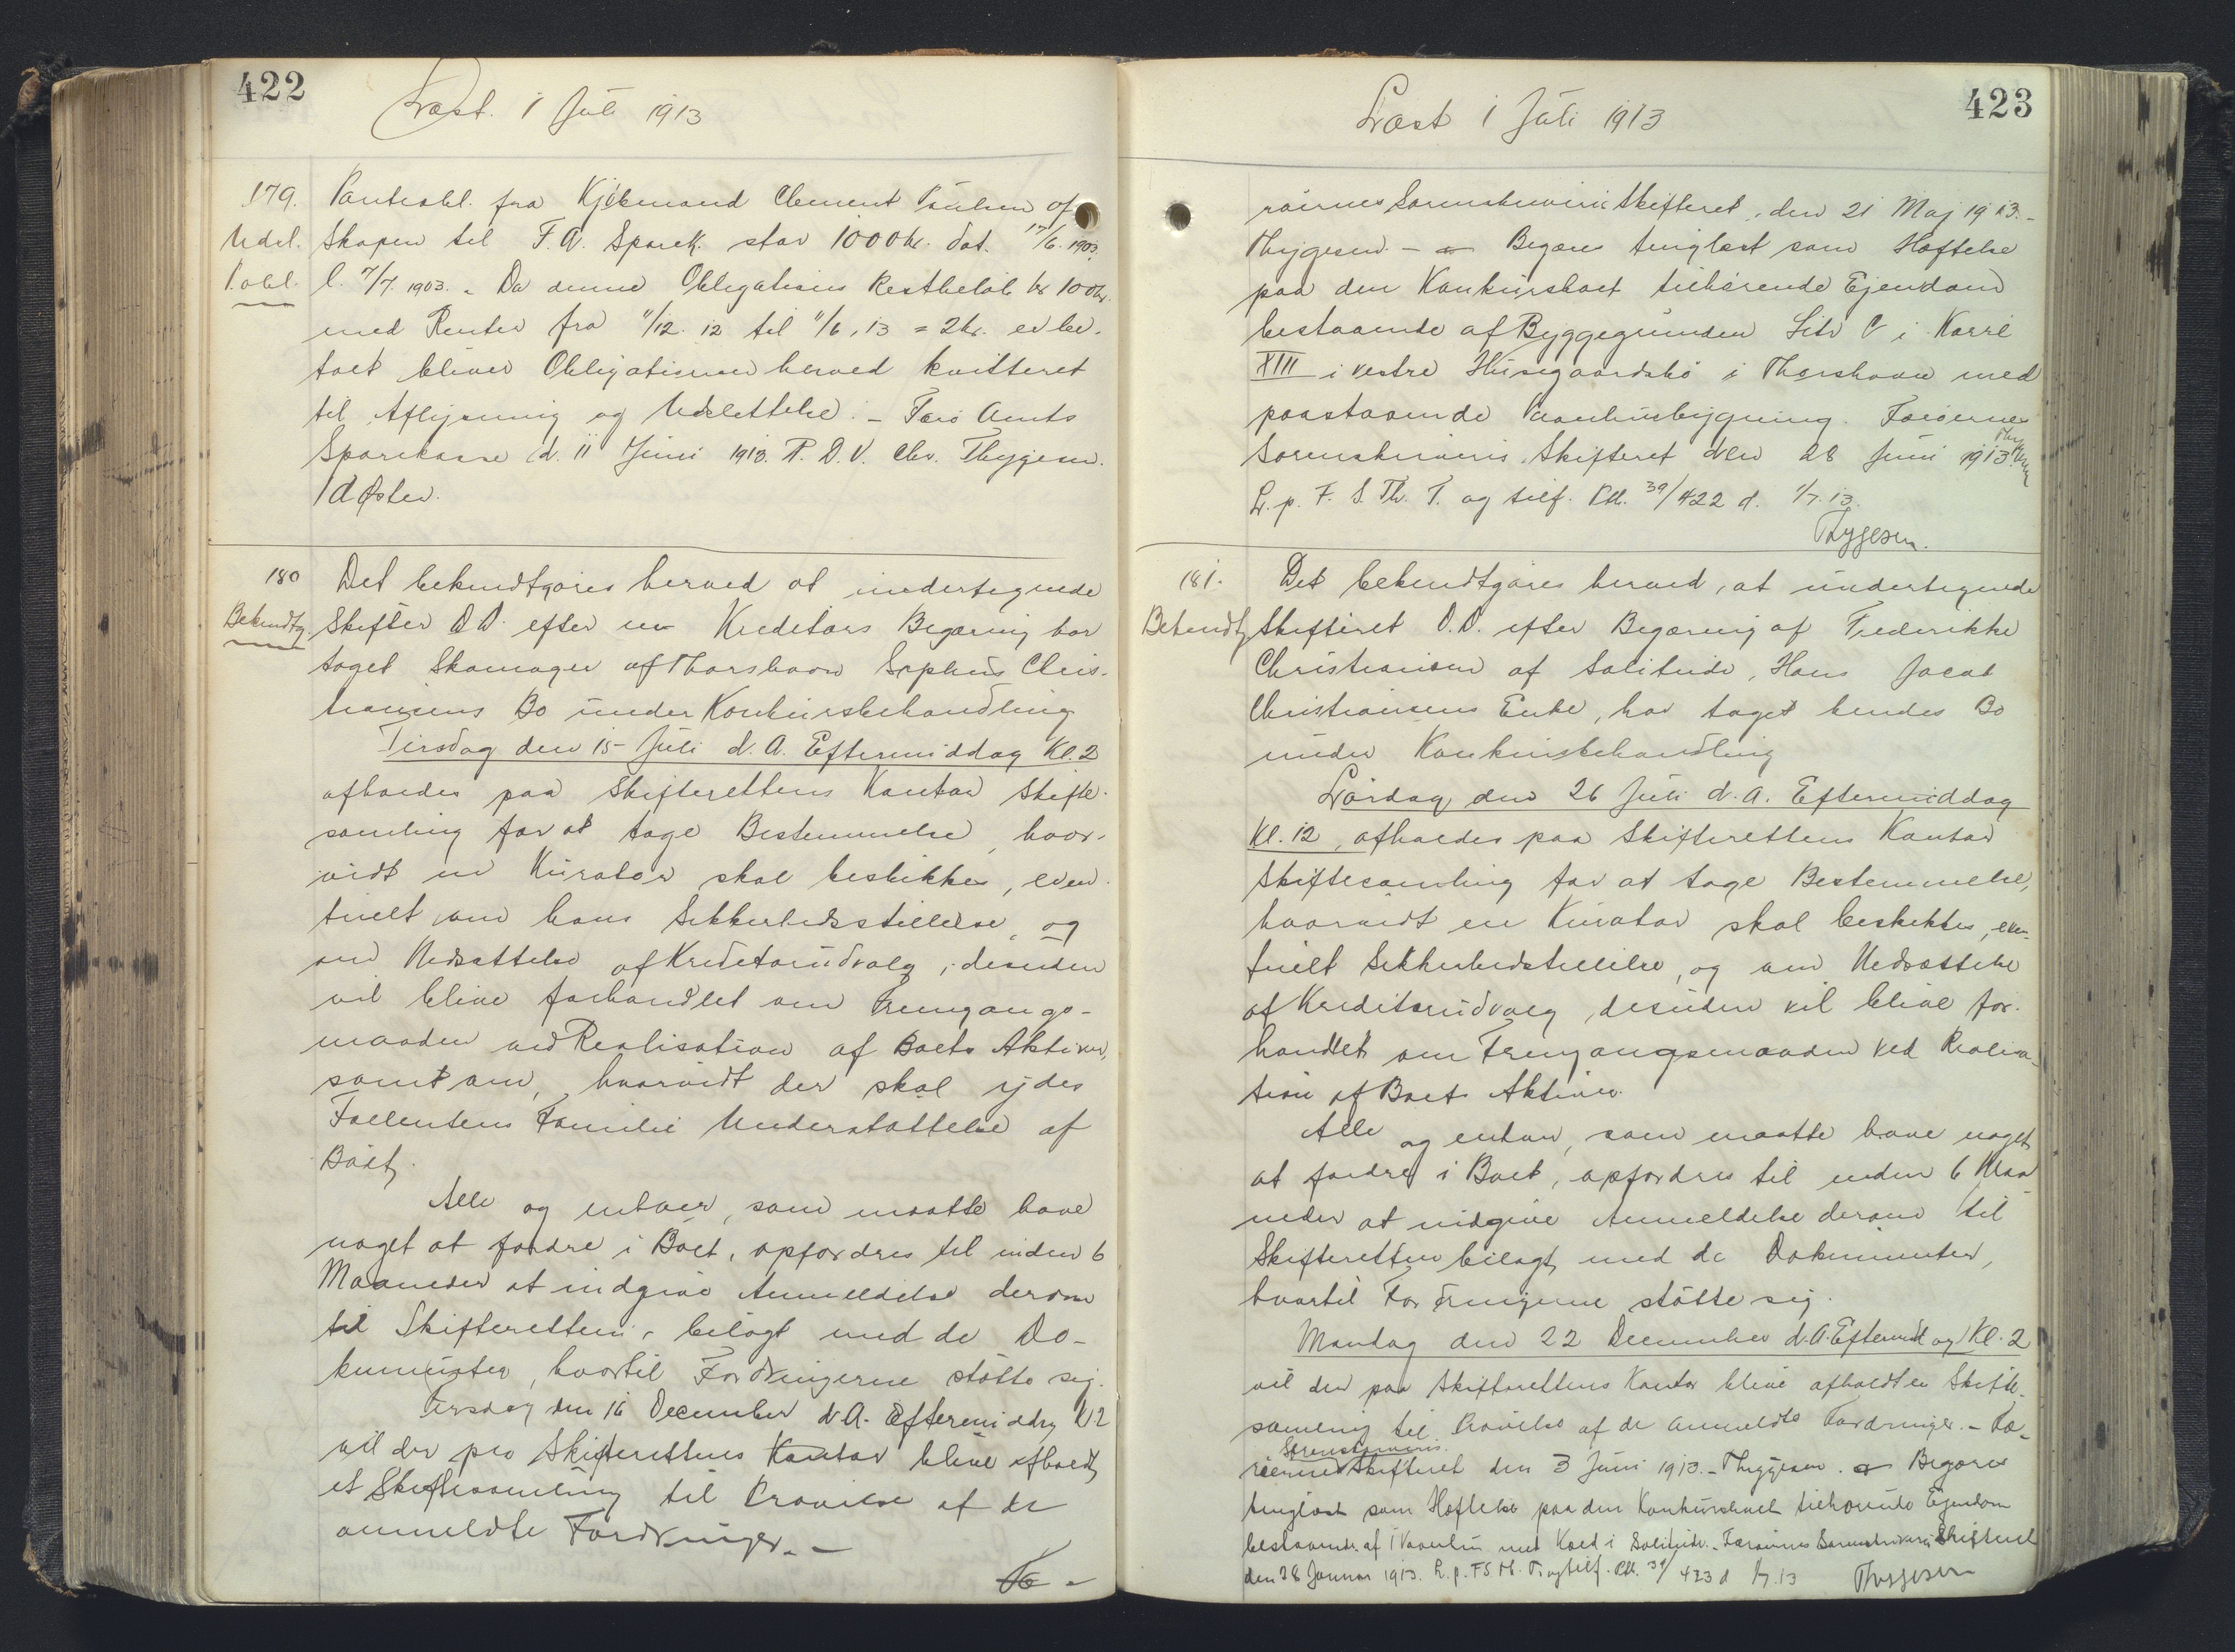 422
Læst. 1 Juli 1913
179. Panteobl. fra Kjøbmand Clement Paulsen af
Udsl. Skopen til F. A. Sparek. stor 1000 kr. dat. 1903.
P.obl. l. 7/7. 1903. - Da denne Obligations Restbeløb kr 100 kr.
med Renter fra 11/12. 12 til 11/6. 13 = 2 kr. er be-
talt bliver Obligationen herved kvitteret
til Aflysning og Udslettelse. - Færø Amts
Sparekasse d. 11 Juni 1913. P. D. V. Chr. Thygesen.
180 Det bekendtgøres herved at undertegnede
Bekendtg. Skifter D. D. efter en Kreditors Begæring har
taget Skomager af Thorshavn Sophus Chris-
tiansens Bo under Konkursbehandling
Tirsdag den 15 Juli d. A. Eftermiddag Kl. 2
afholdes paa Skifterettens Kontor Skifte-
samling for at tage Bestemmelse, hvor-
vidt en Kurator skal beskikkes, even-
tuelt om hans Sikkerhedsstillelse, og
om Nedsættelse af Kreditorudvalg, desuden
vil blive forhandlet om Fremgangs-
maaden ved Realisation af Boets Aktiver,
samt om, hvorvidt der skal ydes
Fallentens Familie Understøttelse af
Boet.
Alle og enhver, som maatte have
noget at fordre i Boet, opfordres til inden 6
Maaneder at indgive Anmeldelse derom
til Skifteretten, bilagt med de Do-
kumenter, hvortil Fordringerne støtte sig.
Tirsdag den 16 December d. A. Eftermiddag Kl. 2
vil der paa Skifterettens Kontor blive afholdt
et Skiftesamling til Prøvelse af de
anmeldte Fordringer. -
Fæ -
423
Læst 1 Juli 1913
røernes Sorenskriveri Skifteret, den 21 Maj 1913. -
Thygesen. - Begæres tinglæst som Hæftelse
paa den Konkursboet tilhørende Ejendom
bestaaende af Byggegrunden Litr C i Karré
XIII i vestre Húsegaardsbø i Thorshavn med
paastaaende Vaanhusbygning. Færøernes
Sorenskriveri Skifteret den 28 Juni 1913.
L. p. F. S. Th. T. og tilf. Ptl. 39/422 d. 1/7. 13.
Thygesen.
181. Det bekendtgøres herved, at undertegnede
Bekendtg Skifteret D. D. efter Begæring af Frederikke
Christiansen af Solitude, Hans Jacob
Christiansens Enke, har taget hendes Bo
under Konkursbehandling
Lørdag den 26 Juli d. A. Eftermiddag
Kl. 12, afholdes paa Skifterettens Kontor
Skiftesamling for at tage Bestemmelse,
hvorvidt en Kurator skal beskikkes, even-
tuelt Sikkerhedstillelse, og om Nedsættelse
af Kreditorudvalg, desuden vil blive for-
handlet om Fremgangsmaaden ved Realisa-
tion af Boets Aktiver.
Alle og enhver, som maatte have noget
at fordre i Boet, opfordres til inden 6 Maa
neder at indgive Anmeldelse derom til
Skifteretten bilagt med de Dokumenter,
hvortil Fordringerne støtte sig.
Mandag den 22 December d. A. Eftermidag Kl. 2
vil der paa Skifterettens Kontor blive afholdt en Skifte-
samling til Prøvelse af de anmeldte Fordringer. - Fæ-
Sorenskriveris
røernes Skifteret den 3 Juni 1913. - Thygesen. Begæres
tinglæst som Hæftelse paa den Konkursboet tilhørende Ejendom
bestaaende af 1 Vaanhus med Kæld i Solitude. - Færøernes Sorenskriveri Skifteret
den 28 Januar 1913. L. p. F S Th. T. og tilf. Ptl. 39/423 d 1/7. 13 Thygesen